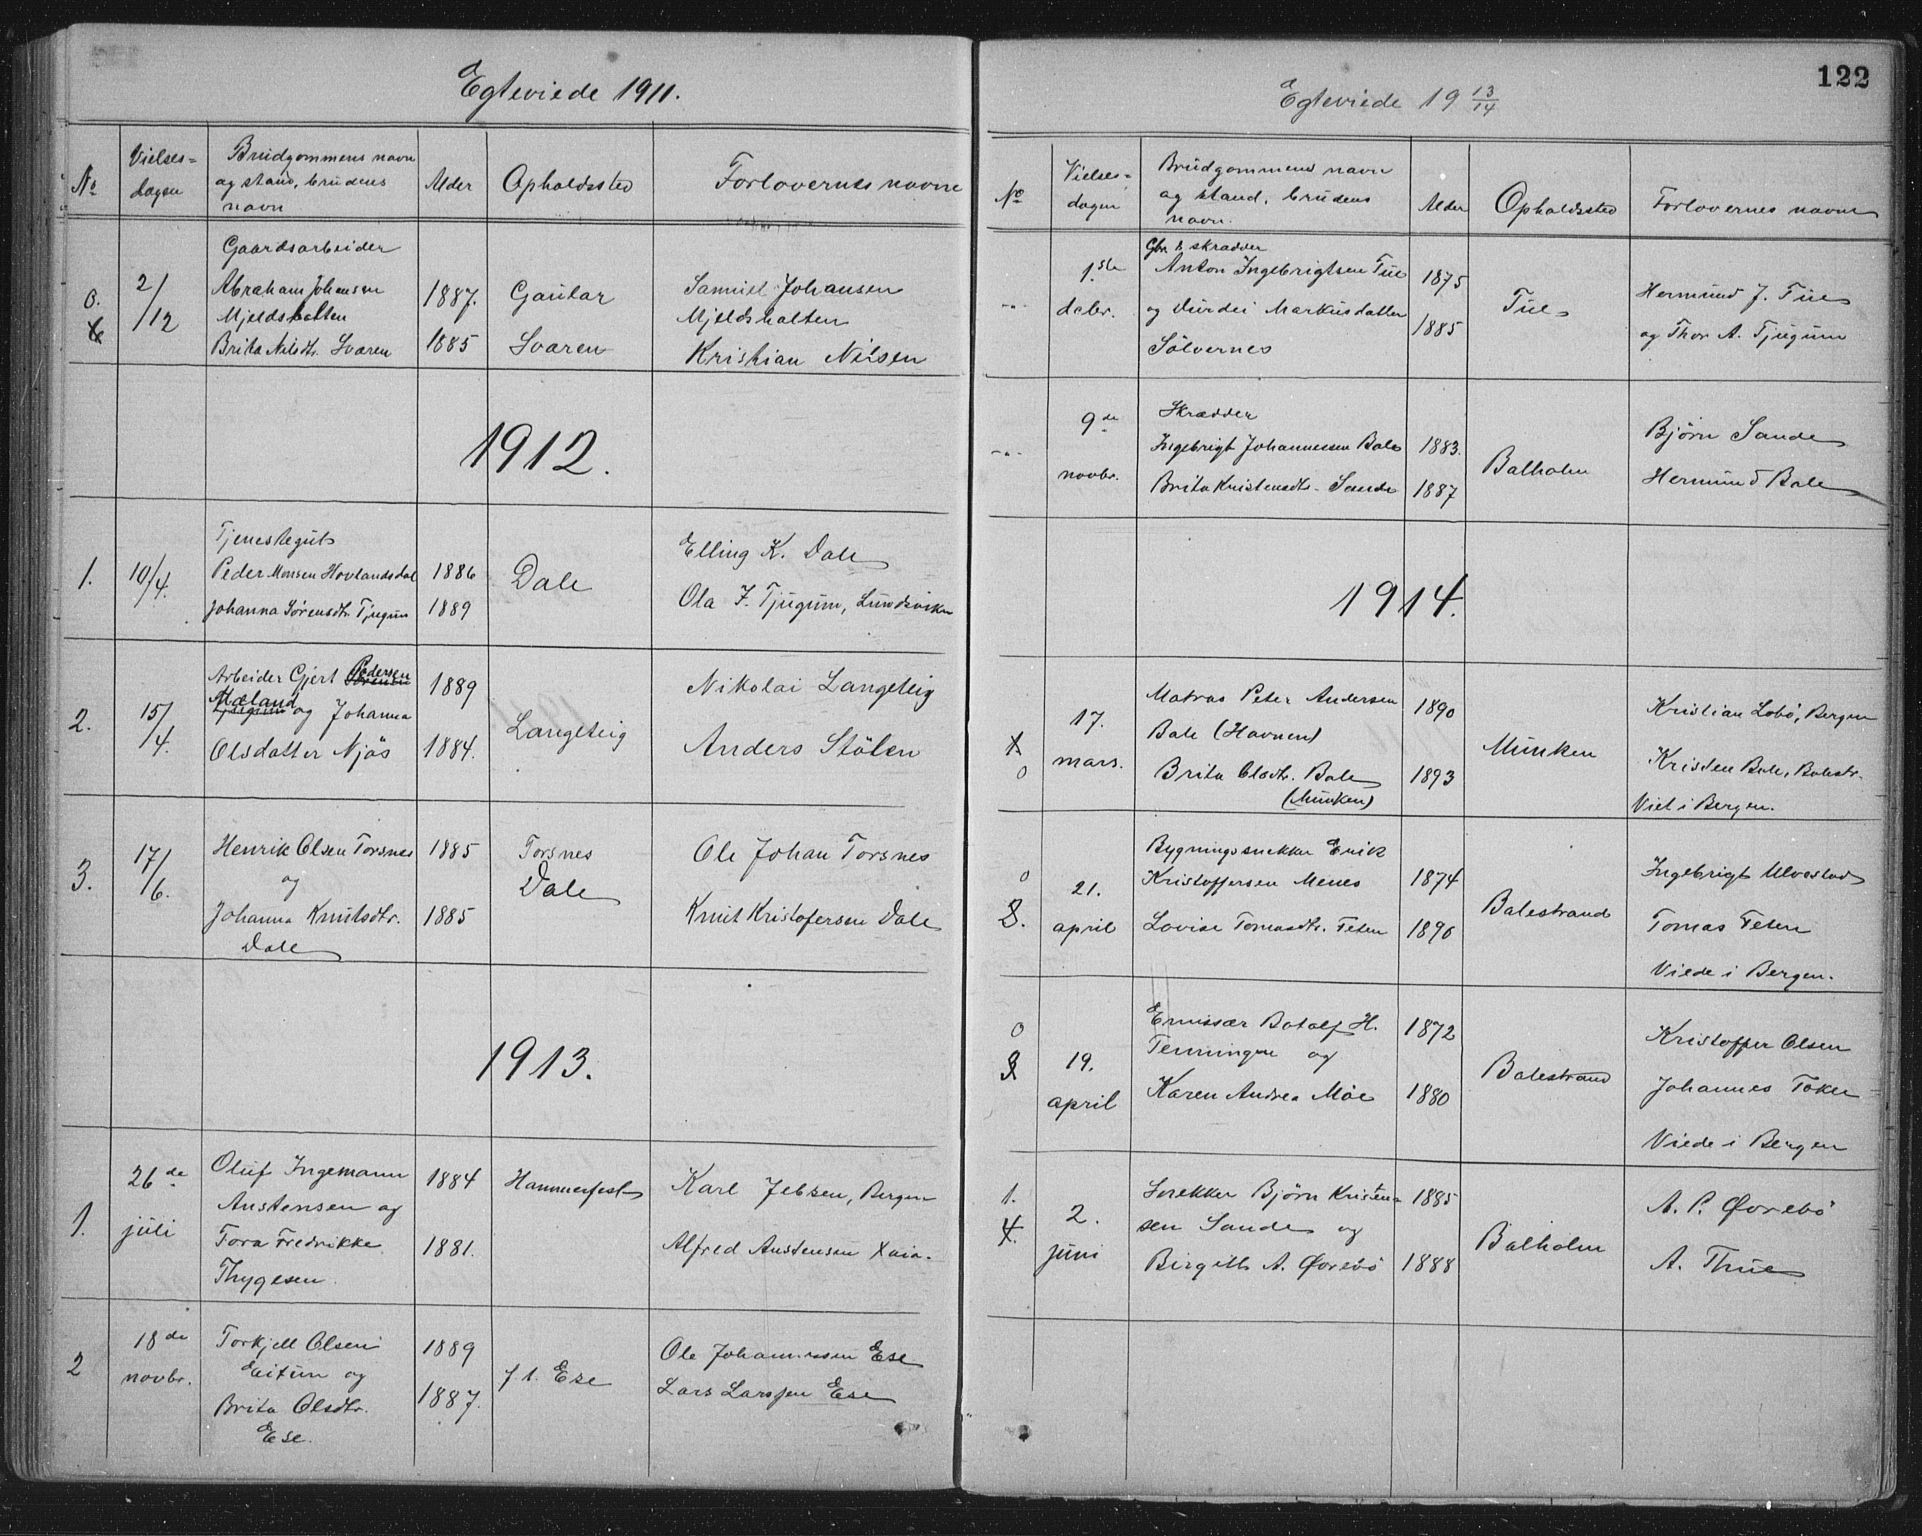 Egteviede 1911.
No
Vielses=
dagen
Brudgommens navn
og stand, brudens
navn
Alder
Opholdssted
Forlovernes navne
0.
2/12
Gaardsarbeider
Abraham Johansen
Mjeldsholten
Brita Nilsdtr. Svaren
1887.
1885
Gaular
Svaren
Samuel Johansen
Mjeldsholten
Kristian Nilsen
1912.
1.
10/4.
Tjenestegut
Peder Monsen Hovlandsdal
Johanna Sørensdtr. Tjugum
1886
1889
Dale
Elling K. Dale
Ola J. Tjugum, Lundsviken
2.
15/4.
Arbeider Gjert Pedersen
Mæland og Johanna
Olsdatter Njøs
1889
1884.
Langeteig
Nikolai Langeteig
Anders Stölen
3.
17/6.
Henrik Olsen Torsnes
og
Johanna Knutsdtr.
Dale
1885
1885
Torsnes
Dale
Ole Johan Torsnes
Knut Kristofersen Dale
1913.
1.
26de
juli
Oluf Ingemann
Austensen og
Tora Fredrikke
Thygesen.
1884
1881.
Hammerfest
Karl Jebsen, Bergen
Alfred Austensen
2
18de
novbr.
Torkjell Olsen
Eitun og
Brita Olsdtr.
Ese.
1889
1887.
Ese
Ole Johannessen Ese
Lars Larssen Ese
122
Egteviede 19 13/14
No
Vielses=
dagen
Brudgommens navn
og stand, brudens
navn.
Alder
Opholdssted
Forlovernes navne
-"-
1ste
debr.
Gbr & skrædder
Anton Ingebrigtsen Tue
og Durdei Markusdatter
Sølvernes
1875
1885
Tue
Hermund J. Tue
og Thor A. Tjugum
-"-
9de
novbr.
Skrædder
Ingebrigt Johannessen Bale
Brita Kristensdtr. Sande
1883.
1887
Balholm
Bjørn Sande
Hermund Bale
1914.
0
17.
mars.
Matros Peter Andersen
Bale (Havnen)
Brita Olsdtr. Bale
(Munken)
1890
1893
Munken
Kristian Lobø, Bergen
Kristen Bale, Balestr.
Viet i Bergen.
0
21.
april
Bygningssnekker Erik
Kristoffersen Menes
Lovise Tomasdtr. Feten
1874
1890
Balestrand
Ingebrigt Ulvestad
Tomas Feten
Viede i Bergen.
0
19.
april
Emissær Botolf H.
Tenningen og
Karen Andrea Moe
1872
1880
Balestrand
Kristoffer Olsen
Johannes Toker
Viede i Bergen
1.
4.
2.
juni
Snekker Björn Kristen=
sen Sande og
Birgitte A. Øvrebö
1885
1888
Balholm
A. P. Øvrebö
A. Thue